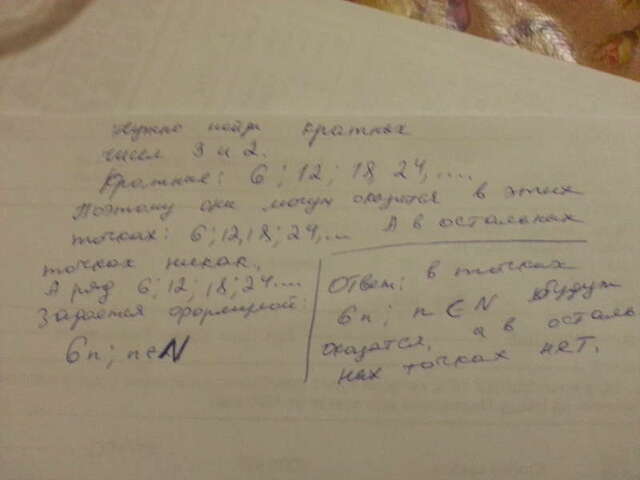 Нужно найти кратных
чисел 3 и 2.
Кратные: 6; 12; 18, 24,....
Поэтому они могут оказатся в этих
точках: 6; 12, 18; 24,... А в остальных
точках никак.
А ряд 6; 12; 18; 24....
Задается формулой:
6n; n∈N
Ответ: в точках
6n; n∈N будут
оказатся, а в осталь
ных точках нет.